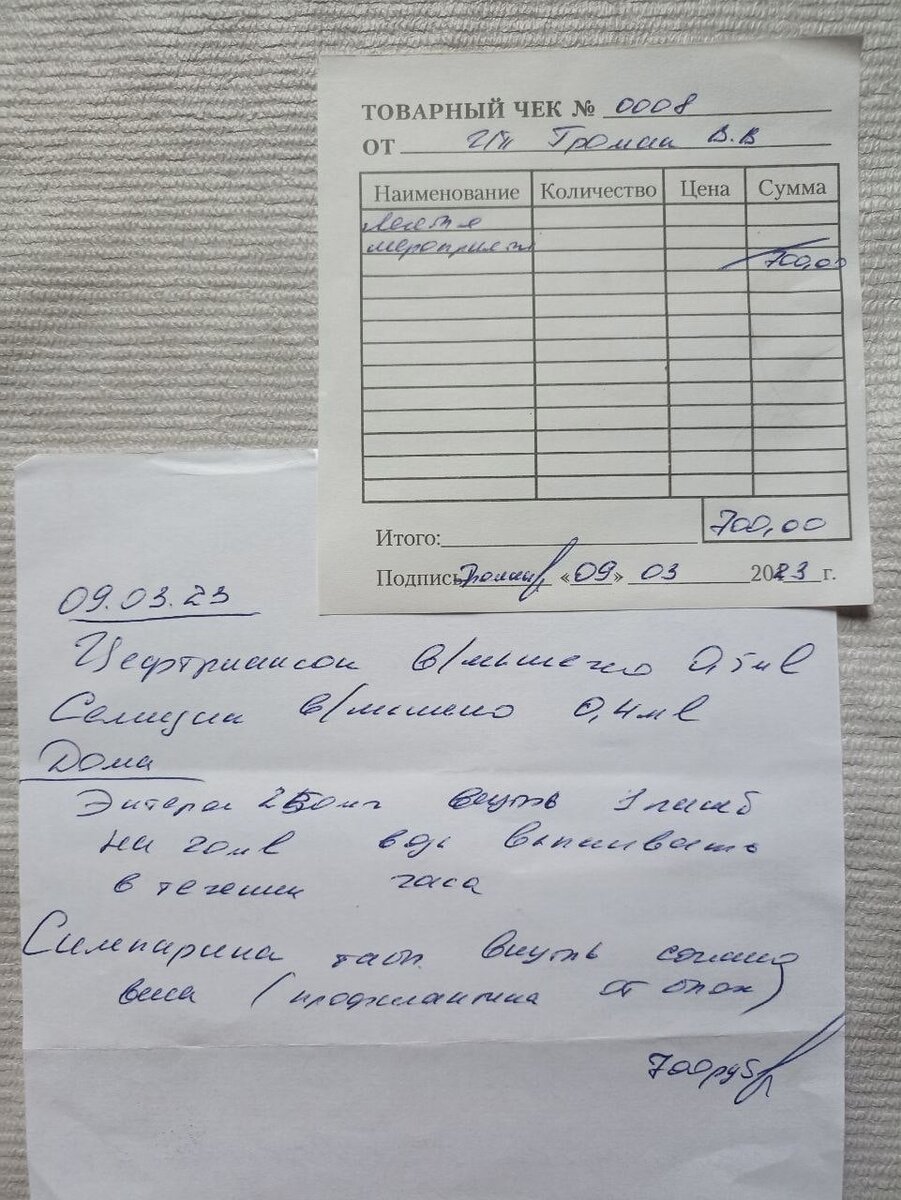 ТОВАРНЫЙ ЧЕК № 0008
ОТ ИП Громак В.В
Наименование Количество Цена Сумма
мероприятия
700,00
Итого: 700,00
Подпись «09» 03 2023 г.
09.03.23
Цефтриаксон в/мышечно 0,5мл
в/мышечно 0,4мл
Дома
250мг внутрь 1
на 20мл воды выпаивать
в течении часа
Симпарика табл. внутрь согласно
веса (профилактика от блох)
700руб